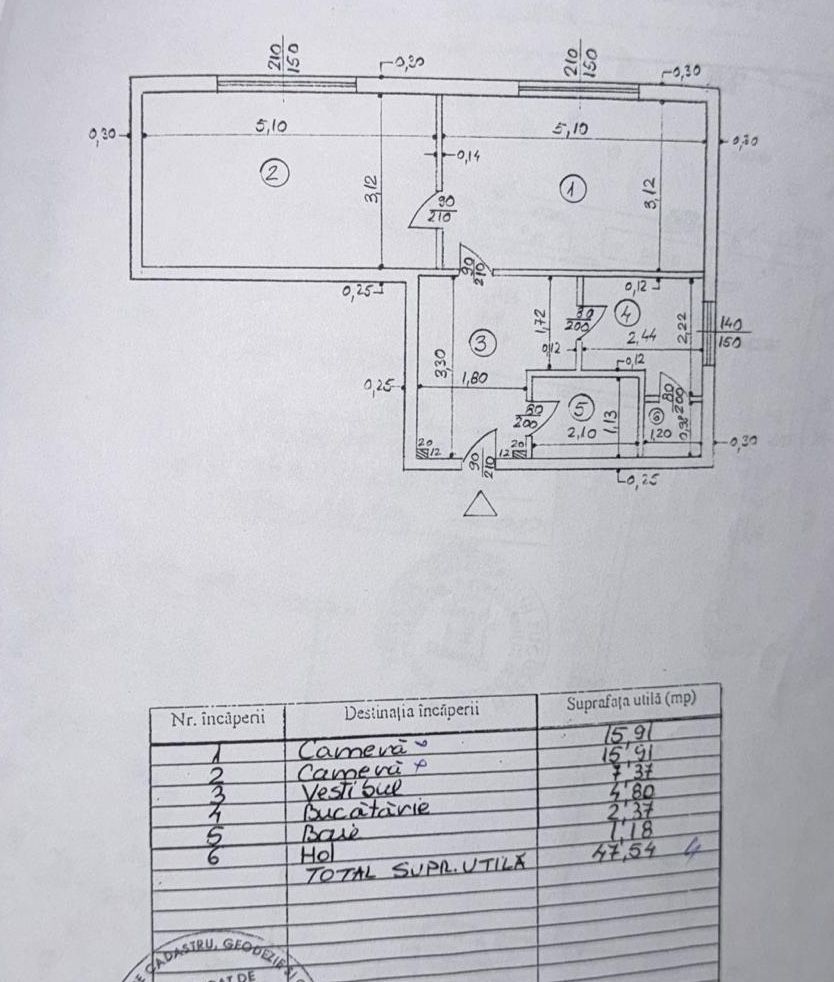 210
150
0,30
210
150
0,30
0,30
5,10
5,10
0,30
0,14
2
3,12
1
3,12
90
210
90
210
0,25
0,12
3
1,72
80
200
4
140
150
2,44
2,22
0,12
0,12
3,30
0,25
1,80
80
200
80
200
5
1,13
2,10
6
1,20
0,98
20
12
20
12
90
210
0,30
0,25
Nr. încăperii
Destinația încăperii
Suprafața utilă (mp)
1 Cameră 15,91
2 Cameră 15,91
3 Vestibul 7,37
4 Bucătărie 4,80
5 Baie 2,37
6 Hol 1,18
TOTAL SUPR. UTILĂ 47,54
CADASTRU, GEODEZIE ȘI
DE